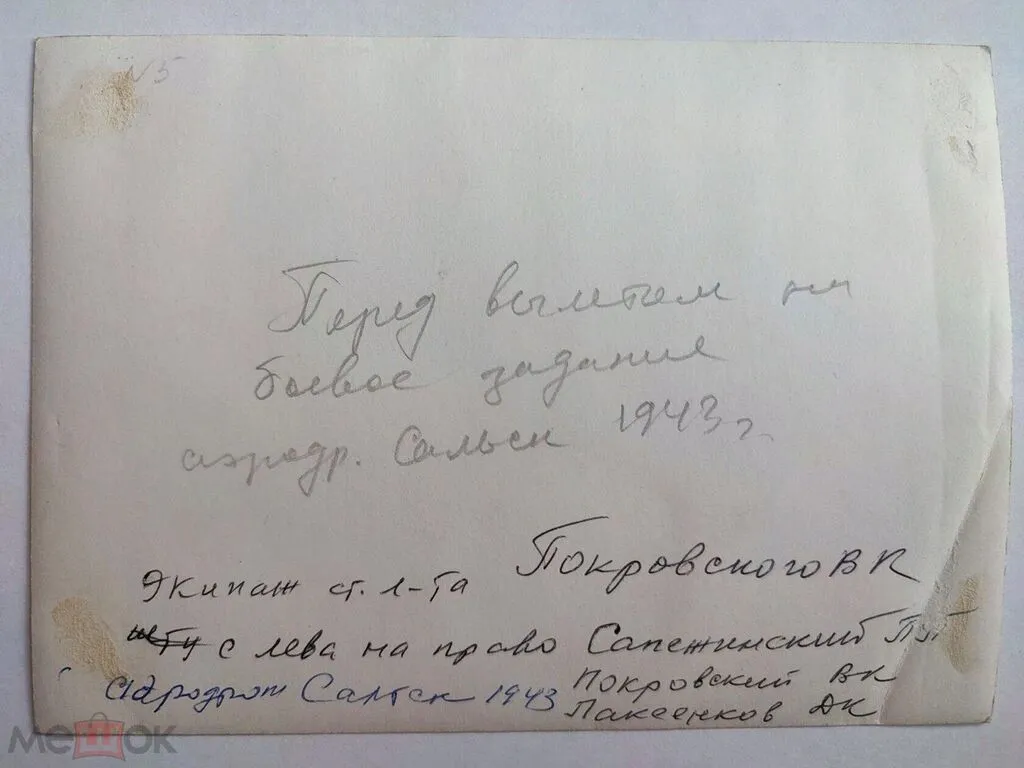 N 5
Перед вылетом на
боевое задание
аэродр. Сальск 1943 г.
Экипаж ст. л-та Покровского ВК
с лева на право Сапежинский
Покровский ВК
аэродром Сальск 1943
Лакеенков ДК
мешок